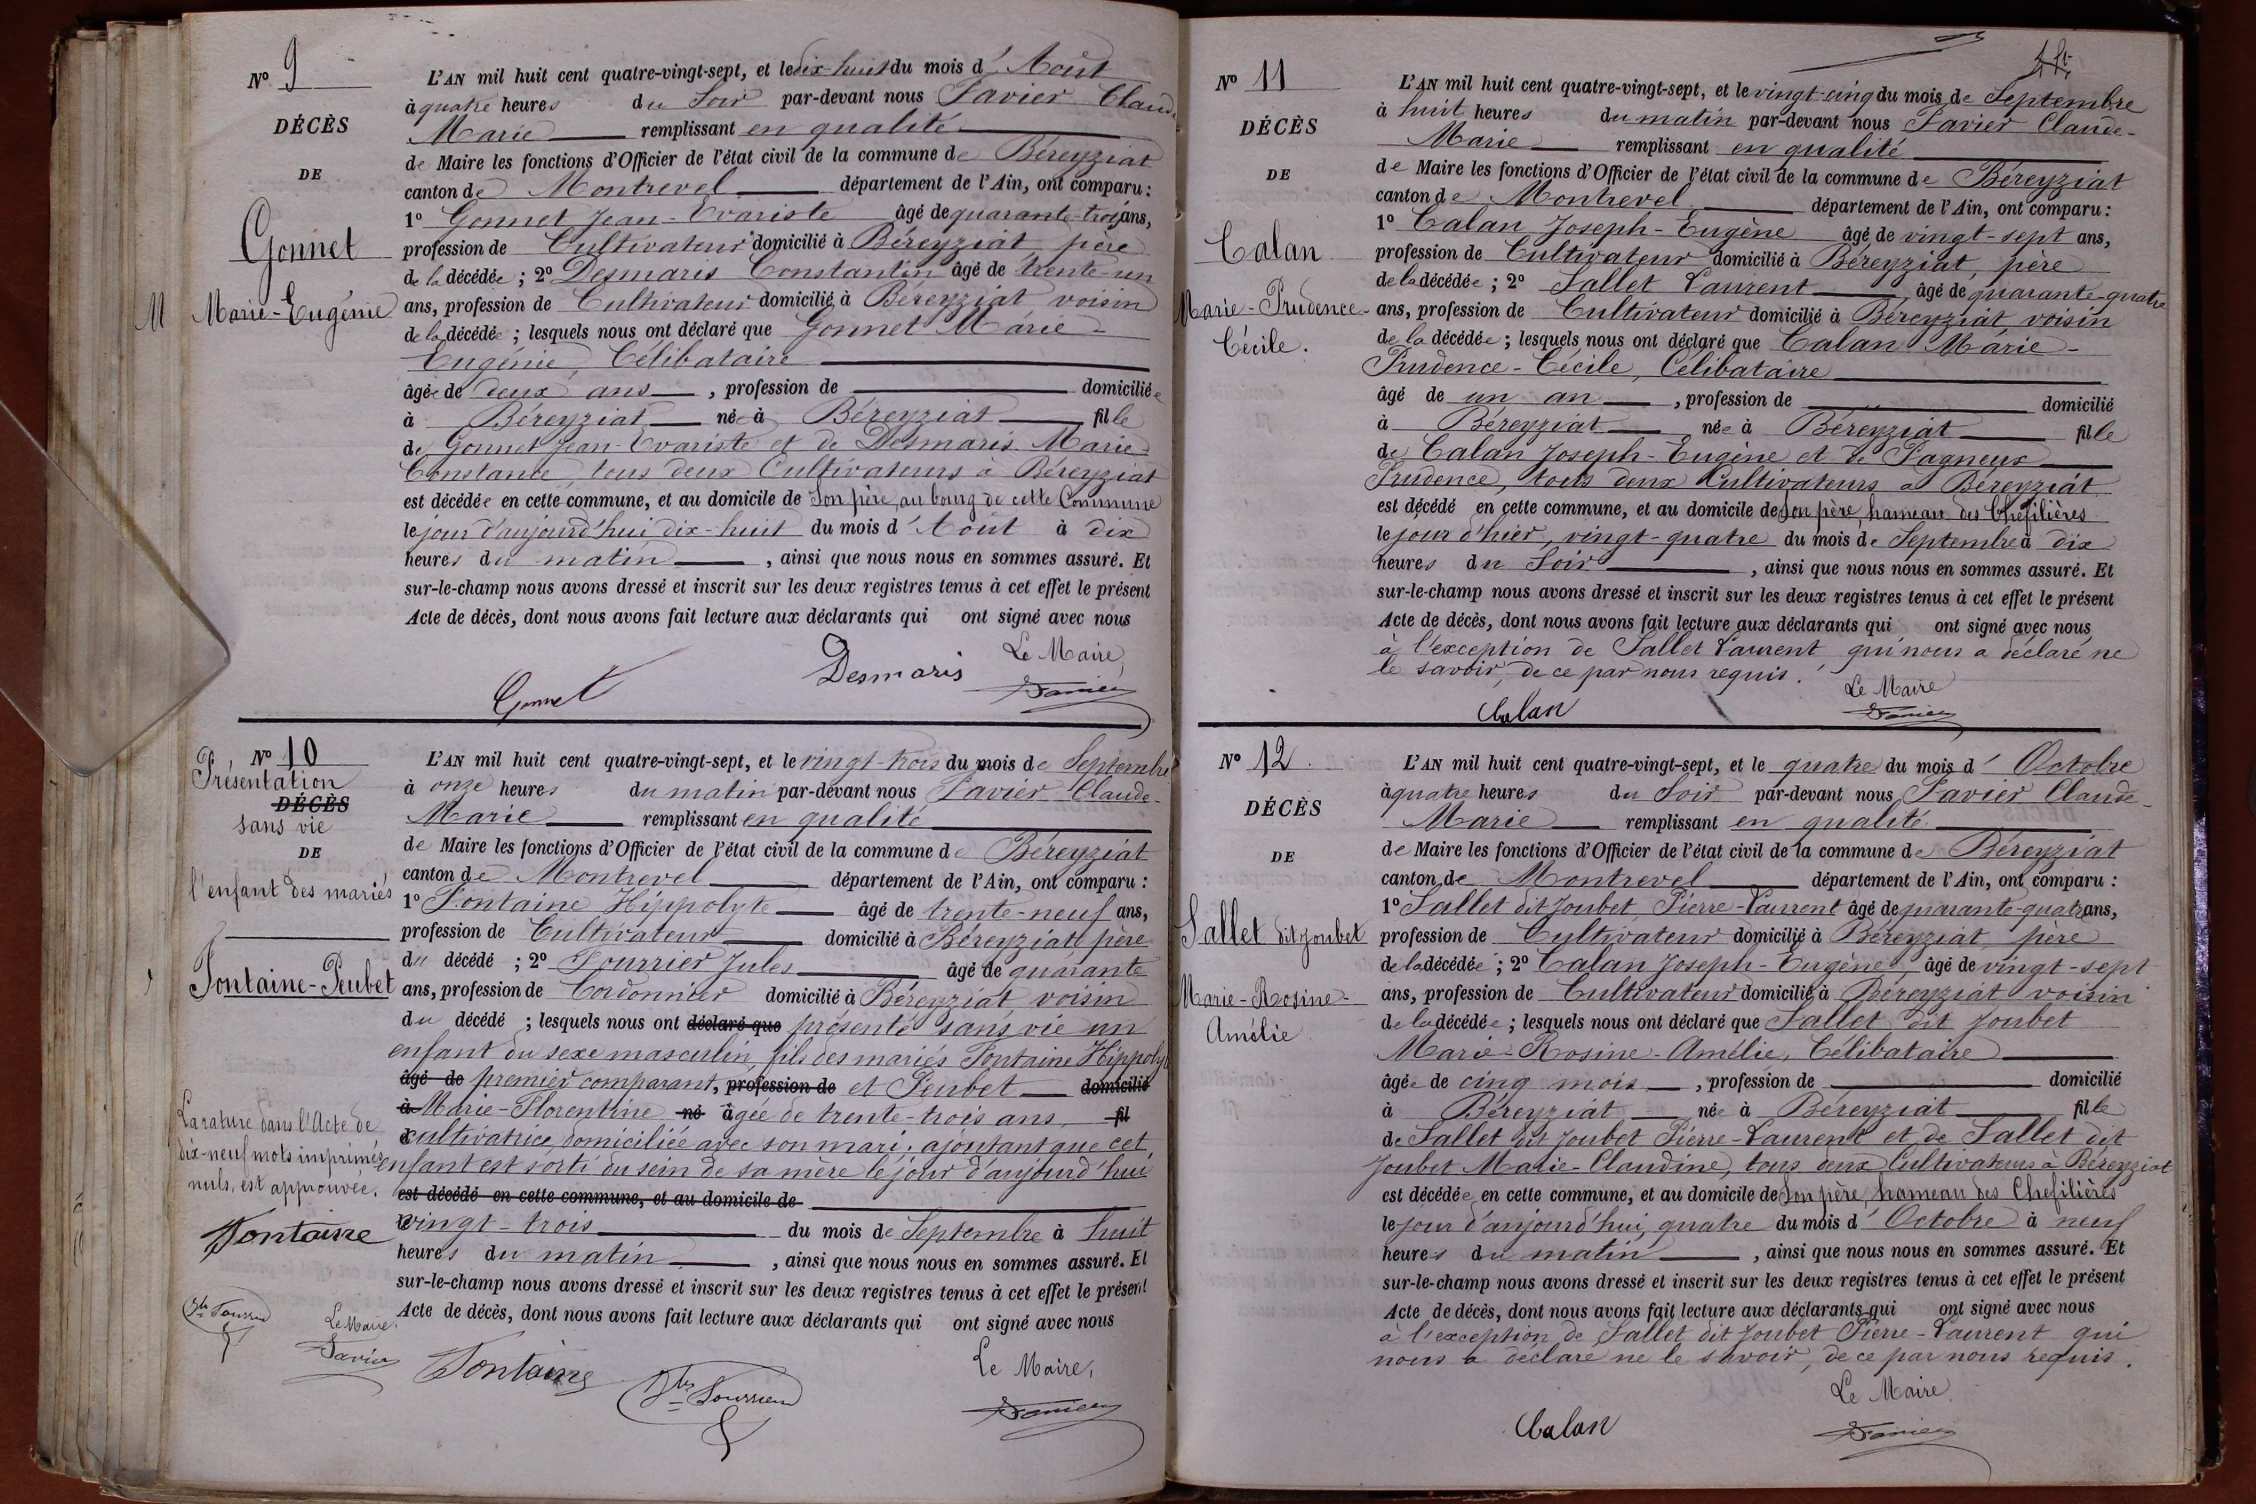 N° 9
DÉCÈS
DE
Gonnet
M Marie-Eugénie
L'AN mil huit cent quatre-vingt-sept, et le dix-huit du mois d'Août
à quatre heures du Soir par-devant nous Favier Claude
Marie remplissant en qualité
de Maire les fonctions d'Officier de l'état civil de la commune de Béreyziat
canton de Montrevel département de l'Ain, ont comparu :
1° Gonnet Jean-Evariste âgé de quarante-trois ans,
profession de Cultivateur domicilié à Béreyziat, père
de la décédée ; 2° Desmaris Constantin âgé de trente-un
ans, profession de Cultivateur domicilié à Béreyziat voisin
de la décédée ; lesquels nous ont déclaré que Gonnet Marie-
Eugénie, Célibataire
âgée de deux ans , profession de domiciliée
à Béreyziat née à Béreyziat fille
de Gonnet Jean-Evariste et de Desmaris Marie-
Constance, tous deux Cultivateurs à Béreyziat
est décédée en cette commune, et au domicile de Son père, au bourg de cette Commune
le jour d'aujourd'hui dix-huit du mois d'Août à dix
heures du matin , ainsi que nous nous en sommes assuré. Et
sur-le-champ nous avons dressé et inscrit sur les deux registres tenus à cet effet le présent
Acte de décès, dont nous avons fait lecture aux déclarants qui ont signé avec nous
Le Maire,
Gonnet Desmaris Favier
N° 10
Présentation
DÉCÈS
sans vie
DE
l'enfant des mariés
Fontaine-Peubet
La rature dans l'Acte de
dix-neuf mots imprimés
nuls, est approuvée.
Fontaine
Jles Fourrier
Le Maire,
Favier
L'AN mil huit cent quatre-vingt-sept, et le vingt-trois du mois de Septembre
à onze heures du matin par-devant nous Favier Claude-
Marie remplissant en qualité
de Maire les fonctions d'Officier de l'état civil de la commune de Béreyziat
canton de Montrevel département de l'Ain, ont comparu :
1° Fontaine Hippolyte âgé de trente-neuf ans,
profession de Cultivateur domicilié à Béreyziat père
du décédé ; 2° Fourrier Jules âgé de quarante
ans, profession de Cordonnier domicilié à Béreyziat, voisin
du décédé ; lesquels nous ont déclaré que présenté sans vie un
enfant du sexe masculin, fils des mariés Fontaine Hippolyte
âgé de premier comparant, profession de et Peubet domicilié
à Marie-Florentine né âgée de trente-trois ans, fil
cultivatrice, domiciliée avec son mari ; ajoutant que cet
enfant est sorti du sein de sa mère le jour d'aujourd'hui
est décédé en cette commune, et au domicile de
le vingt-trois du mois de Septembre à huit
heures du matin , ainsi que nous nous en sommes assuré. Et
sur-le-champ nous avons dressé et inscrit sur les deux registres tenus à cet effet le présent
Acte de décès, dont nous avons fait lecture aux déclarants qui ont signé avec nous
Le Maire,
Fontaine Jles Fourrier Favier
N° 11
DÉCÈS
DE
Calan
Marie-Prudence-
Cécile.
L'AN mil huit cent quatre-vingt-sept, et le vingt-cinq du mois de Septembre
à huit heures du matin par-devant nous Favier Claude-
Marie remplissant en qualité
de Maire les fonctions d'Officier de l'état civil de la commune de Béreyziat
canton de Montrevel département de l'Ain, ont comparu :
1° Calan Joseph-Eugène âgé de vingt-sept ans,
profession de Cultivateur domicilié à Béreyziat, père
de la décédée ; 2° Sallet Laurent âgé de quarante-quatre
ans, profession de Cultivateur domicilié à Béreyziat voisin
de la décédée ; lesquels nous ont déclaré que Calan Marie-
Prudence-Cécile, Célibataire
âgé de un an , profession de domicilié
à Béreyziat née à Béreyziat fille
de Calan Joseph-Eugène et de Pagneux
Prudence, tous deux Cultivateurs à Béreyziat
est décédé en cette commune, et au domicile de Son père, hameau des Chefilières
le jour d'hier, vingt-quatre du mois de Septembre à dix
heures du Soir , ainsi que nous nous en sommes assuré. Et
sur-le-champ nous avons dressé et inscrit sur les deux registres tenus à cet effet le présent
Acte de décès, dont nous avons fait lecture aux déclarants qui ont signé avec nous
à l'exception de Sallet Laurent qui nous a déclaré ne
le savoir, de ce par nous requis.
Le Maire
Calan Favier
N° 12.
DÉCÈS
DE
Sallet dit Joubet
Marie-Rosine-
Amélie
L'AN mil huit cent quatre-vingt-sept, et le quatre du mois d'Octobre
à quatre heures du Soir par-devant nous Favier Claude-
Marie remplissant en qualité
de Maire les fonctions d'Officier de l'état civil de la commune de Béreyziat
canton de Montrevel département de l'Ain, ont comparu :
1° Sallet dit Joubet Pierre-Laurent âgé de quarante-quatre ans,
profession de Cultivateur domicilié à Béreyziat, père
de la décédée ; 2° Calan Joseph-Eugène, âgé de vingt-sept
ans, profession de Cultivateur domicilié à Béreyziat voisin
de la décédée ; lesquels nous ont déclaré que Sallet dit Joubet
Marie-Rosine-Amélie, Célibataire
âgée de cinq mois , profession de domicilié
à Béreyziat née à Béreyziat fille
de Sallet dit Joubet Pierre-Laurent et de Sallet dit
Joubet Marie-Claudine, tous deux Cultivateurs à Béreyziat
est décédée en cette commune, et au domicile de Son père, hameau des Chefilières
le jour d'aujourd'hui, quatre du mois d'Octobre à neuf
heures du matin , ainsi que nous nous en sommes assuré. Et
sur-le-champ nous avons dressé et inscrit sur les deux registres tenus à cet effet le présent
Acte de décès, dont nous avons fait lecture aux déclarants qui ont signé avec nous
à l'exception de Sallet dit Joubet Pierre-Laurent qui
nous a déclaré ne le savoir, de ce par nous requis.
Le Maire
Calan Favier